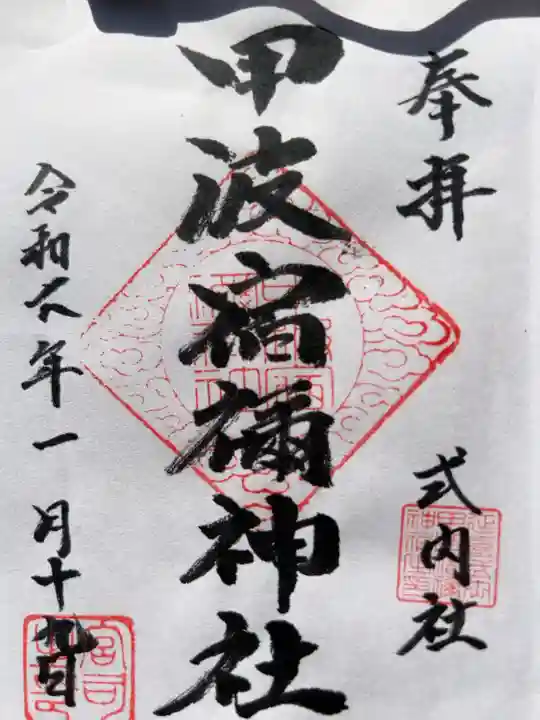 奉拝
式内社
甲波宿禰神社
令和六年一月十九日
宮司